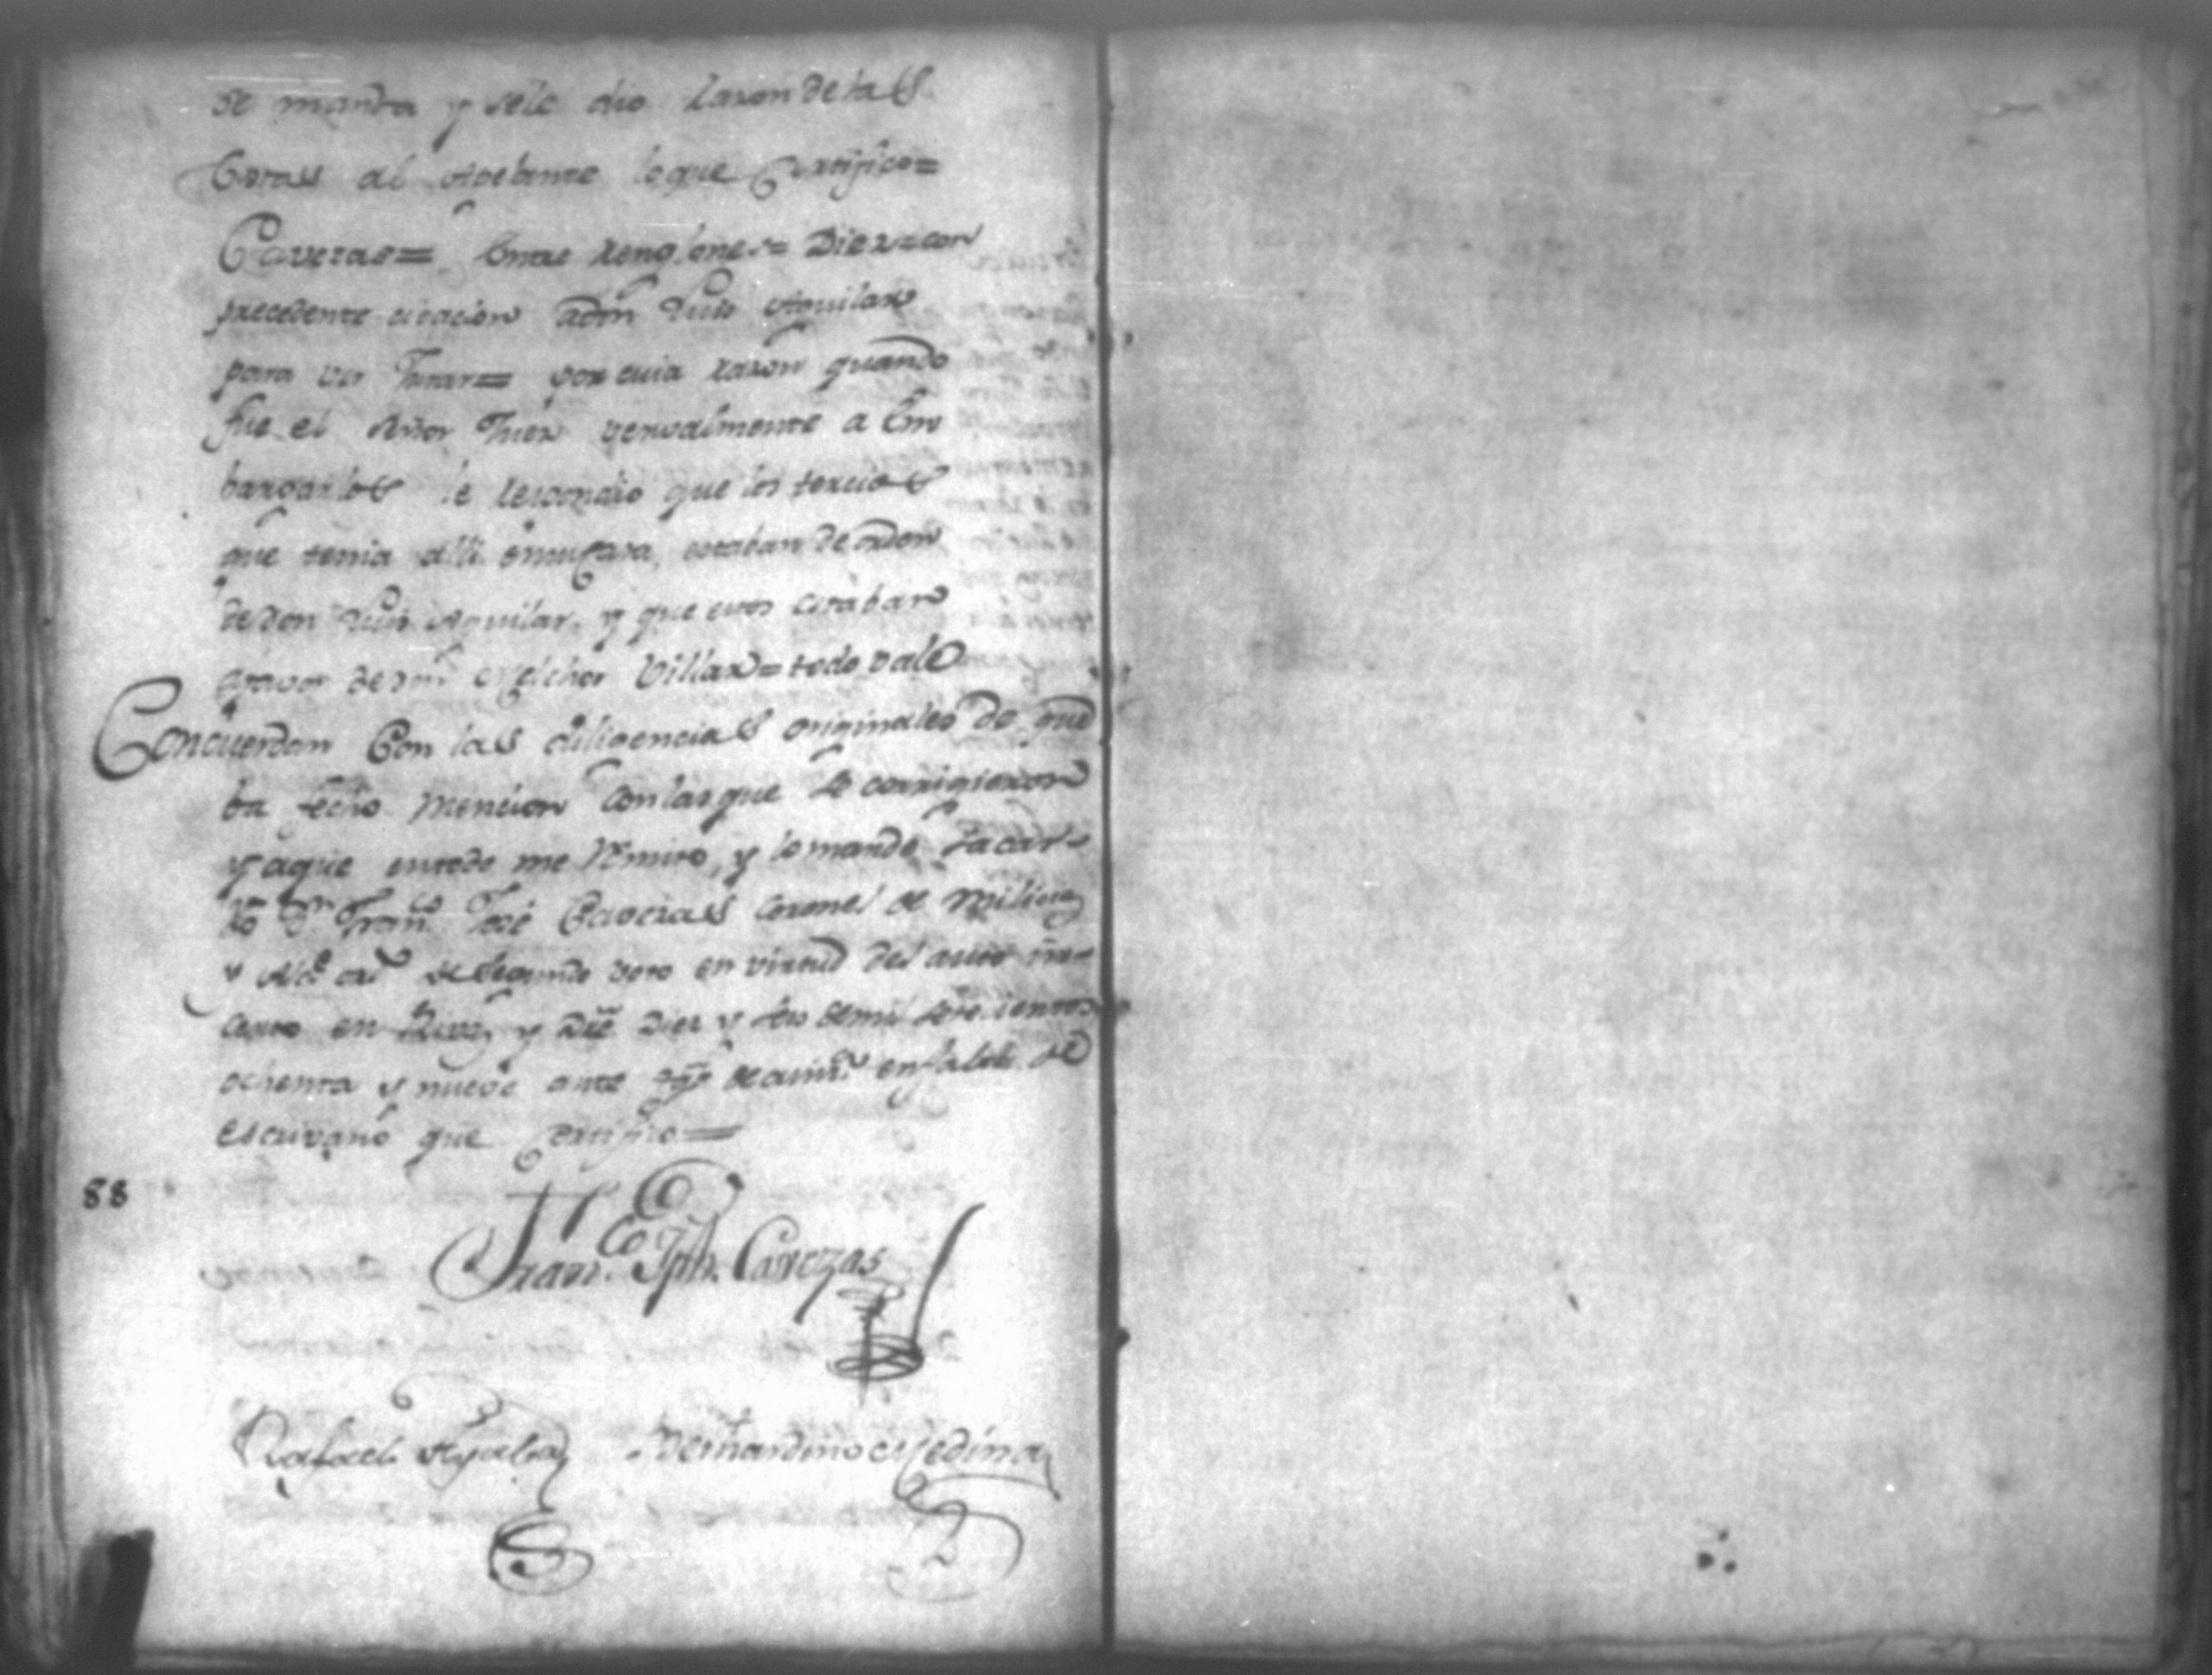 se manda y sele dio Razon de las
al adelante lo que Certifico=
Caveras= Entre renglones= Diez=con
precedente citacion adn Luis Aguilar
para ver = por cuia razon quando
fue el señor Juez vervalmente a Em
bargarlos le respondio que los tercios
que tenia alli en su Casa, estaban de orden
de Don Luis Aguilar, y que estos estaban
de Dn Melchor Villar= todo vale
Concuerdan Con las diligencias originales de que
ha fecho mencion Con las que se corrigieron
y a que en todo me Remito, y lo mandó sacar
yo Dn Franco José Caveras Coronel de Milicias
y Alce ordo de segundo voto en virtud del auto in-
certo en y Dice Diez y de mil setecientos
ochenta y nueve ante tgos de en falta de
escrivano que Certifico=
88
Franco Jph. Caverzas
Rafael Ayala Bernardino Medina